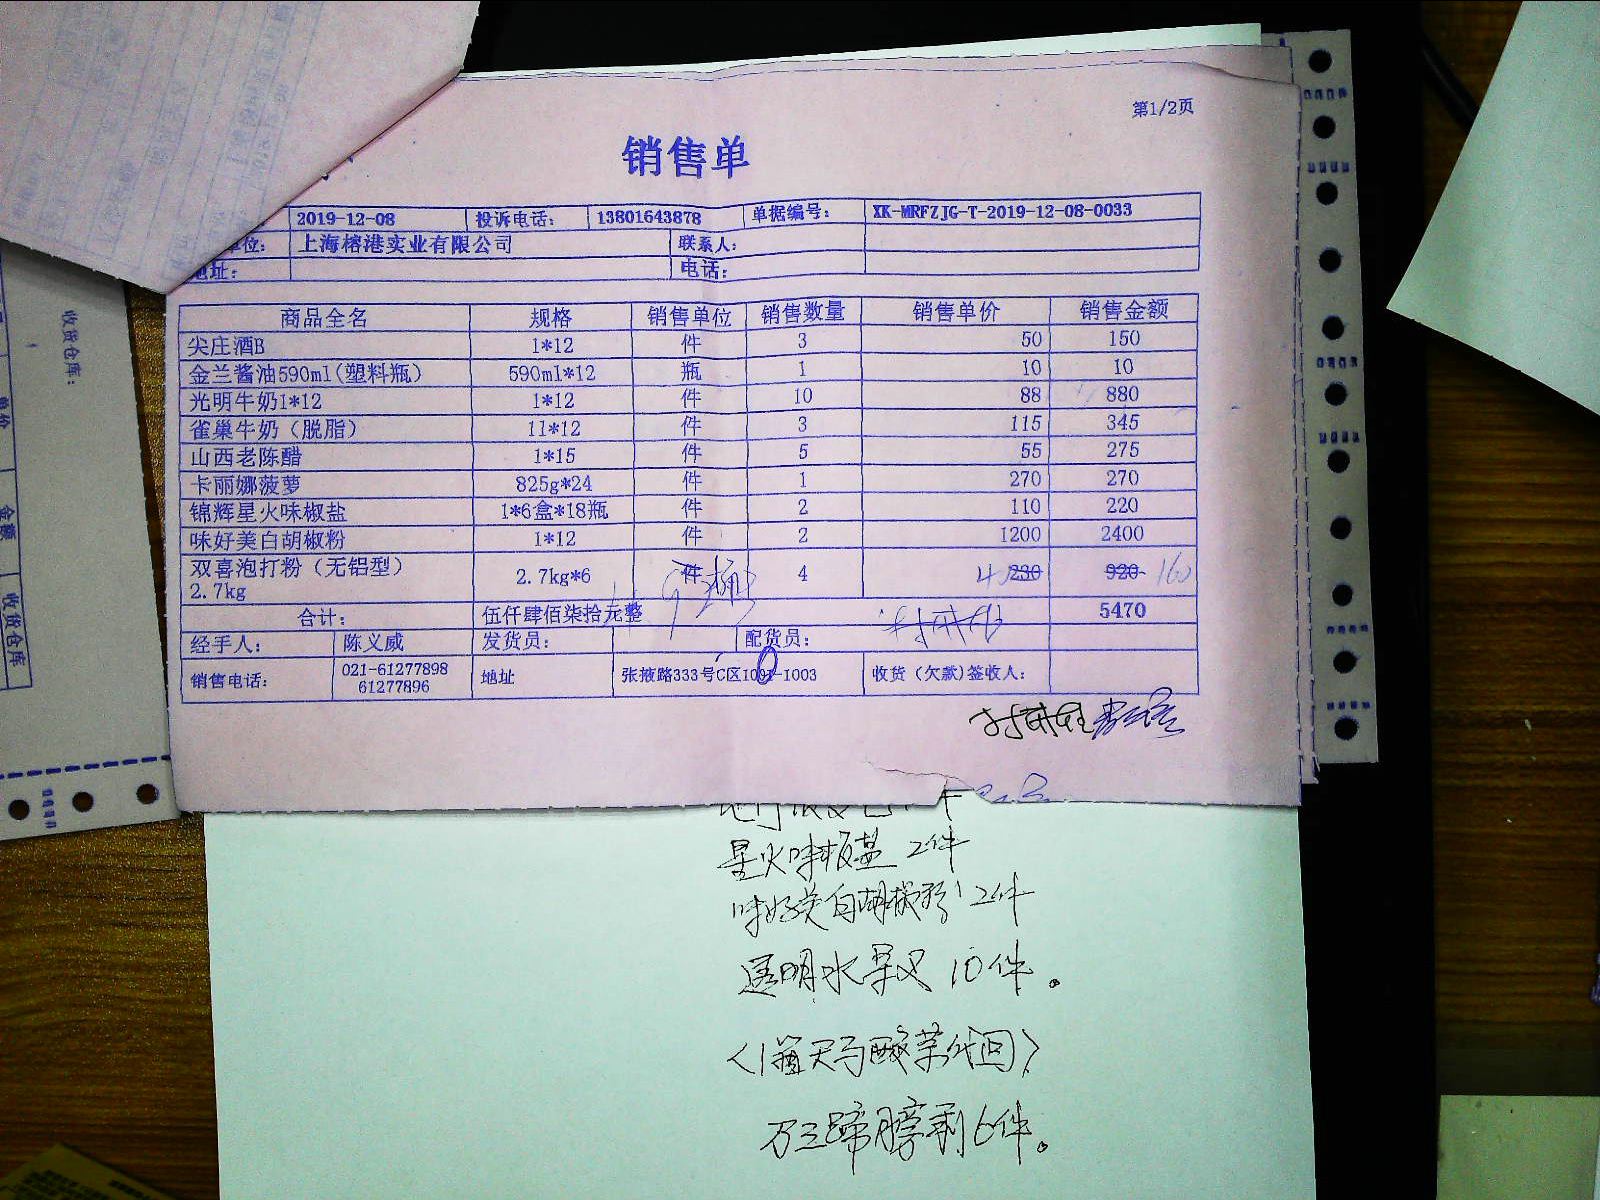 第1/2页
销售单
2019-12-08 投诉电话: 13801643878 单据编号: XK-MRFZJG-T-2019-12-08-0033
单位: 上海榕港实业有限公司 联系人:
地址: 电话:
商品全名 规格 销售单位 销售数量 销售单价 销售金额
尖庄酒B 1*12 件 3 50 150
金兰酱油590ml(塑料瓶) 590ml*12 瓶 1 10 10
光明牛奶1*12 1*12 件 10 88 880
雀巢牛奶（脱脂） 1l*12 件 3 115 345
山西老陈醋 1*15 件 5 55 275
卡丽娜菠萝 825g*24 件 1 270 270
锦辉星火味椒盐 1*6盒*18瓶 件 2 110 220
味好美白胡椒粉 1*12 件 2 1200 2400
双喜泡打粉（无铝型） 2.7kg*6 件 4 230 920 160
2.7kg
合计: 伍仟肆佰柒拾元整 5470
经手人: 陈义威 发货员: 配货员:
销售电话: 021-61277898 地址 张掖路333号C区1001-1003 收货（欠款)签收人:
61277896
收货仓库:
单价
金额
收货仓库
星火味椒盐 2件
味好美白胡椒粉 2件
透明水果叉 10件。
万三蹄膀剩6件。